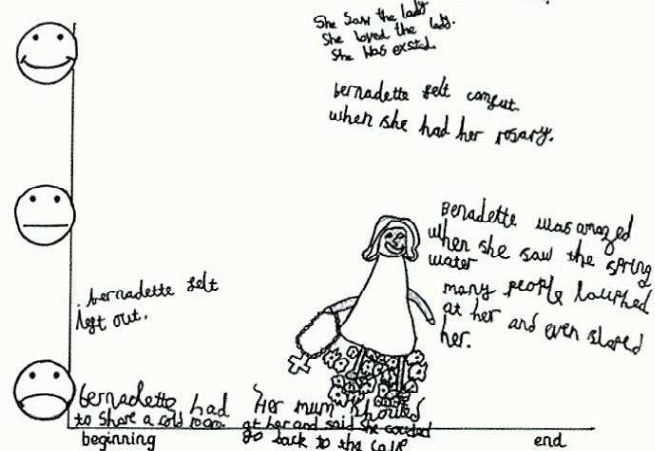 She saw the lady.
She loved the lady.
She was exsted.
bernadette felt comfut.
when she had her rosary.
Bernadette was amazed
when she saw the spring
water
many people laughed
at her and even slaped
her.
bernadette felt
left out.
bernadette had
to share a cold room
Her mum shouted
at her and said she
go back to the
beginning
end